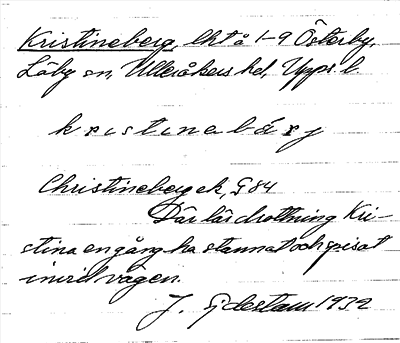 Kristineberg, lht å 1-9 Österby,
Läby sn, Ulleråkers hd, Upps. l.
kristinebärj
Christineberg ek, G 84
Där lär drottning Kri-
stina en gång ha stannat och spisat
invid vägen.
J. Sjdestam 1932